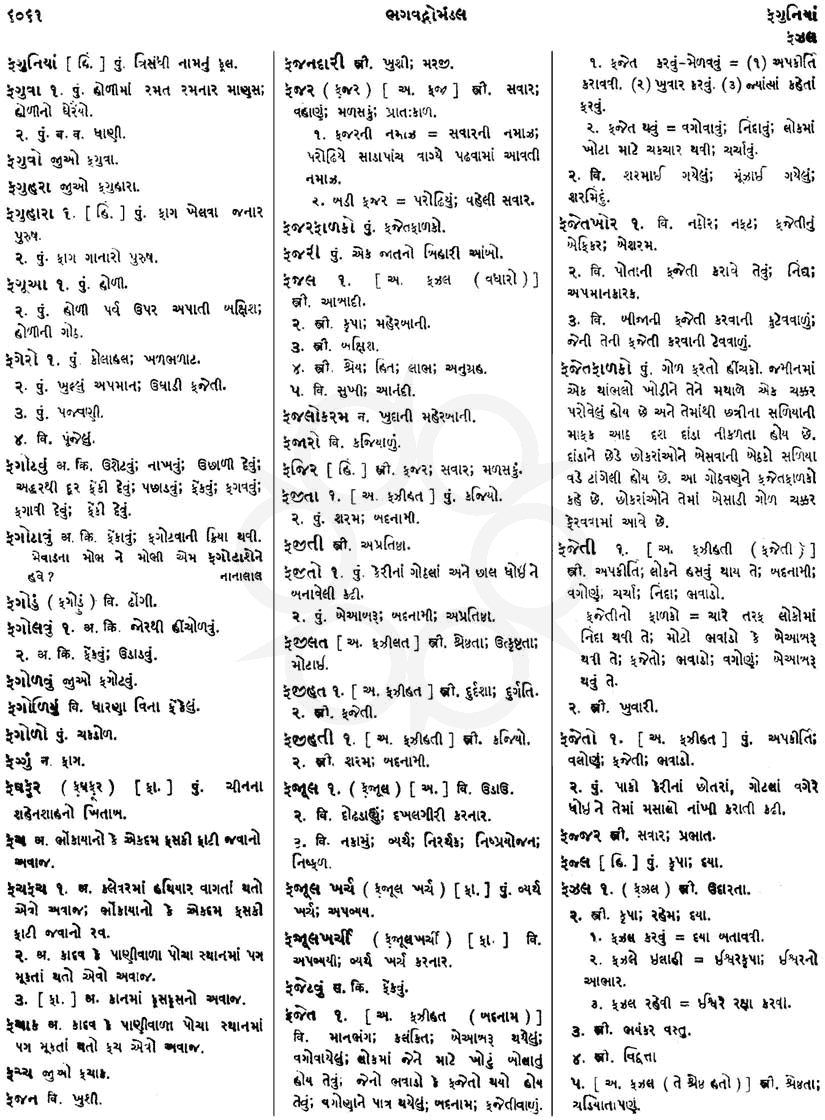 ૬૦૬૧
ભગવદ્ગોમંડલ
ફગુનિયાં
ફઝલ
ફગુનિયાં [ હિં. ] પું. ત્રિસંધી નામનું ફૂલ.
ફગુવા ૧. પું. હોળીમાં રમત રમનાર માણુસ;
હોળીનો ઘેરૈયો.
૨. પું. બ. વ. ધાણી.
ફગુવો જુઓ ફગુવા.
ફગુહરા જુઓ ફગુહારા.
ફગુહારા ૧. [ હિં. ] પું. ફાગ ખેલવા જનાર
પુરુષ.
૨. પું. ફાગ ગાનારો પુરુષ.
ફગૂઆ ૧. પું. હોળી.
૨. પું. હોળી પર્વ ઉપર અપાતી બક્ષિશ;
હોળીની ગોઠ.
ફગેરો ૧. પું. કોલાહલ; ખળભળાટ.
૨. પું. ખુલ્લું અપમાન; ઉઘાડી ફજેતી.
૩. પું. પજવણી.
૪. વિ. પૂંજેલું.
ફગોટવું અ. ક્રિ. ઉશેટવું; નાખવું; ઉછાળી દેવું;
અદ્ધરથી દૂર ફેંકી દેવું; પછાડવું; ફેંકવું; ફગવવું;
ફગાવી દેવું; ફેંકી દેવું.
ફગોટાવું અ. ક્રિ. ફેંકાવું; ફગોટવાની ક્રિયા થવી.
મેવાડના મોભ ને મોભી એમ ફગોટાશેને
હવે ? નાનાલાલ
ફગોડું ( ફગોડું ) વિ. ઢોંગી.
ફગોલવું ૧. અ. ક્રિ. જોરથી હીંચોળવું.
૨. અ. ક્રિ. ફેંકવું; ઉડાડવું.
ફગોળવું જુઓ ફગોટવું.
ફગોળિયું વિ. ધારણા વિના ફેંકેલું.
ફગોળો પું. ચકડોળ.
ફગ્ગુ ન. ફાગ.
ફઘફુર ( ફઘફૂર ) [ ફા. ] પું. ચીનના
શહેનશાહનો ખિતાબ.
ફચ અ. ભોંકાયાનો કે એકદમ ફસકી ફાટી જવાનો
અવાજ.
ફચફચ ૧. અ. કલેવરમાં હથિયાર વાગતાં થતો
એવો અવાજ; ભોંકાયાનો કે એકદમ ફસકી
ફાટી જવાનો રવ.
૨. અ. કાદવ કે પાણીવાળા પોચા સ્થાનમાં પગ
મૂકતાં થતો એવો અવાજ.
૩. [ ફા. ] અ. કાનમાં ફૂસફૂસનો અવાજ.
ફચાક અ. કાદવ કે પાણીવાળા પોચા સ્થાનમાં
પગ મૂકતાં થતો ફચ એવો અવાજ.
ફચ્ચ જુઓ ફચાક.
ફજન વિ. ખુશી.
ફજનદારી સ્ત્રી. ખુશી; મરજી.
ફજર ( ફજર ) [ અ. ફજ્ર ] સ્ત્રી. સવાર;
વહાણું; મળસકું; પ્રાતઃકાળ.
૧. ફજરની નમાઝ = સવારની નમાઝ;
પરોઢિયે સાડાપાંચ વાગ્યે પઢવામાં આવતી
નમાઝ.
૨. બડી ફજર = પરોઢિયું; વહેલી સવાર.
ફજરફાળકો પું. ફજેતફાળકો.
ફજરી પું. એક જાતનો બિહારી આંબો.
ફજલ ૧. [ અ. ફઝલ ( વધારો ) ]
સ્ત્રી. આબાદી.
૨. સ્ત્રી. કૃપા; મહેરબાની.
૩. સ્ત્રી. બક્ષિશ.
૪. સ્ત્રી. શ્રેય; હિત; લાભ; અનુગ્રહ.
૫. વિ. સુખી; આનંદી.
ફજલોકરમ ન. ખુદાની મહેરબાની.
ફજારો વિ. કજિયાળું.
ફજિર [ હિં. ] સ્ત્રી. ફજર; સવાર; મળસકું.
ફજીતા ૧. [ અ. ફઝીહત ] પું. કજિયો.
૨. પું. શરમ; બદનામી.
ફજીતી સ્ત્રી. અપ્રતિષ્ઠા.
ફજીતો ૧. પું. કેરીનાં ગોટલાં અને છાલ ધોઈ ને
બનાવેલી કઢી.
૨. પું. બેઆબરૂ; બદનામી; અપ્રતિષ્ઠા.
ફજીલત [ અ. ફઝીલત ] સ્ત્રી. શ્રેષ્ઠતા; ઉત્કૃષ્ટતા;
મોટાઈ.
ફજીહત ૧. [ અ. ફઝીહત ] સ્ત્રી. દુર્દશા; દુર્ગતિ.
૨. સ્ત્રી. ફજેતી.
ફજીહતી ૧. [ અ. ફઝીહતી ] સ્ત્રી. કજિયો.
૨. સ્ત્રી. શરમ; બદનામી.
ફજૂલ ૧. ( ફજૂલ ) [ અ. ] વિ. ઉડાઉ.
૨. વિ. દોઢડાહ્યું; દખલગીરી કરનાર.
૩. વિ. નકામું; વ્યર્થ; નિરર્થક; નિષ્પ્રયોજન;
નિષ્ફળ.
ફજૂલ ખર્ચ ( ફજૂલ ખર્ચ ) [ ફા. ] પું. વ્યર્થ
ખર્ચ; અપવ્યય.
ફજૂલખર્ચી ( ફજૂલખર્ચી ) [ ફા. ] વિ.
અપવ્યયી; વ્યર્થ ખર્ચ કરનાર.
ફજેટવું સ. ક્રિ. ફેંકવું.
ફજેત ૧. [ અ. ફઝીહત ( બદનામ ) ]
વિ. માનભંગ; કલંકિત; બેઆબરૂ થયેલું;
વગોવાયેલું; લોકમાં જેને માટે ખોટું બોલાતું
હોય તેવું; જેનો ભવાડો કે ફજેતો થયો હોય
તેવું; વગોણાને પાત્ર થયેલું; બદનામ; ફજેતીવાળું.
૧. ફજેત કરવું-મેળવવું = (૧) અપકીર્તિ
કરાવવી. (૨) ખુવાર કરવું. (૩) જ્યાંત્યાં કહેતાં
ફરવું.
૨. ફજેત થવું = વગોવાવું; નિંદાવું; લોકમાં
ખોટા માટે ચકચાર થવી; ચર્ચાવું.
૨. વિ. શરમાઈ ગયેલું; મૂંઝાઈ ગયેલું;
શરમિંદું.
ફજેતખોર ૧. વિ. નઠોર; નફટ; ફજેતીનું
બેફિકર; બેશરમ.
૨. વિ. પોતાની ફજેતી કરાવે તેવું; નિંદ્ય;
અપમાનકારક.
૩. વિ. બીજાની ફજેતી કરવાની કુટેવવાળું;
જેની તેની ફજેતી કરવાની ટેવવાળું.
ફજેતફાળકો પું. ગોળ ફરતો હીંચકો. જમીનમાં
એક થાંભલો ખોડીને તેને મથાળે એક ચક્કર
પરોવેલું હોય છે અને તેમાંથી છત્રીના સળિયાની
માફક આઠ દશ દાંડા નીકળતા હોય છે.
દાંડાને છેડે છોકરાંઓને બેસવાની બેઠકો સળિયા
વડે ટાંગેલી હોય છે. આ ગોઠવણને ફજેતફાળકો
કહે છે. છોકરાંઓને તેમાં બેસાડી ગોળ ચક્કર
ફેરવવામાં આવે છે.
ફજેતી ૧. [ અ. ફઝીહતી ( ફજેતી ) ]
સ્ત્રી. અપકીર્તિ; લોકને હસવું થાય તે; બદનામી;
વગોણું; ચર્ચા; નિંદા; ભવાડો.
ફજેતીનો ફાળકો = ચારે તરફ લોકોમાં
નિંદા થવી તે; મોટો ભવાડો કે બેઆબરૂ
થવી તે; ફજેતો; ભવાડો; વગોણું; બેઆબરૂ
થવું તે.
૨. સ્ત્રી. ખુવારી.
ફજેતો ૧. [ અ. ફઝીહત ] પું. અપકીર્તિ;
વલોણું; ફજેતી; ભવાડો.
૨. પું. પાકી કેરીનાં છોતરાં, ગોટલાં વગેરે
ધોઈ ને તેમાં મસાલો નાંખી કરાતી કઢી.
ફજ્જર સ્ત્રી. સવાર; પ્રભાત.
ફજ્લ [ હિં. ] પું. કૃપા; દયા.
ફઝલ ૧. ( ફઝ્લ ) સ્ત્રી. ઉદારતા.
૨. સ્ત્રી. કૃપા; રહેમ; દયા.
૧. ફઝલ કરવું = દયા બતાવવી.
૨. ફઝલે ઇલાહી = ઈશ્વરકૃપા; ઈશ્વરનો
આભાર.
૩. ફઝલ રહેવી = ઈશ્વરે રક્ષા કરવી.
૩. સ્ત્રી. ભયંકર વસ્તુ.
૪. સ્ત્રી. વિદ્વત્તા
૫. [ અ. ફઝલ ( તે શ્રેષ્ઠ હતો ) ] સ્ત્રી. શ્રેષ્ઠતા;
ચડિયાતાપણું.